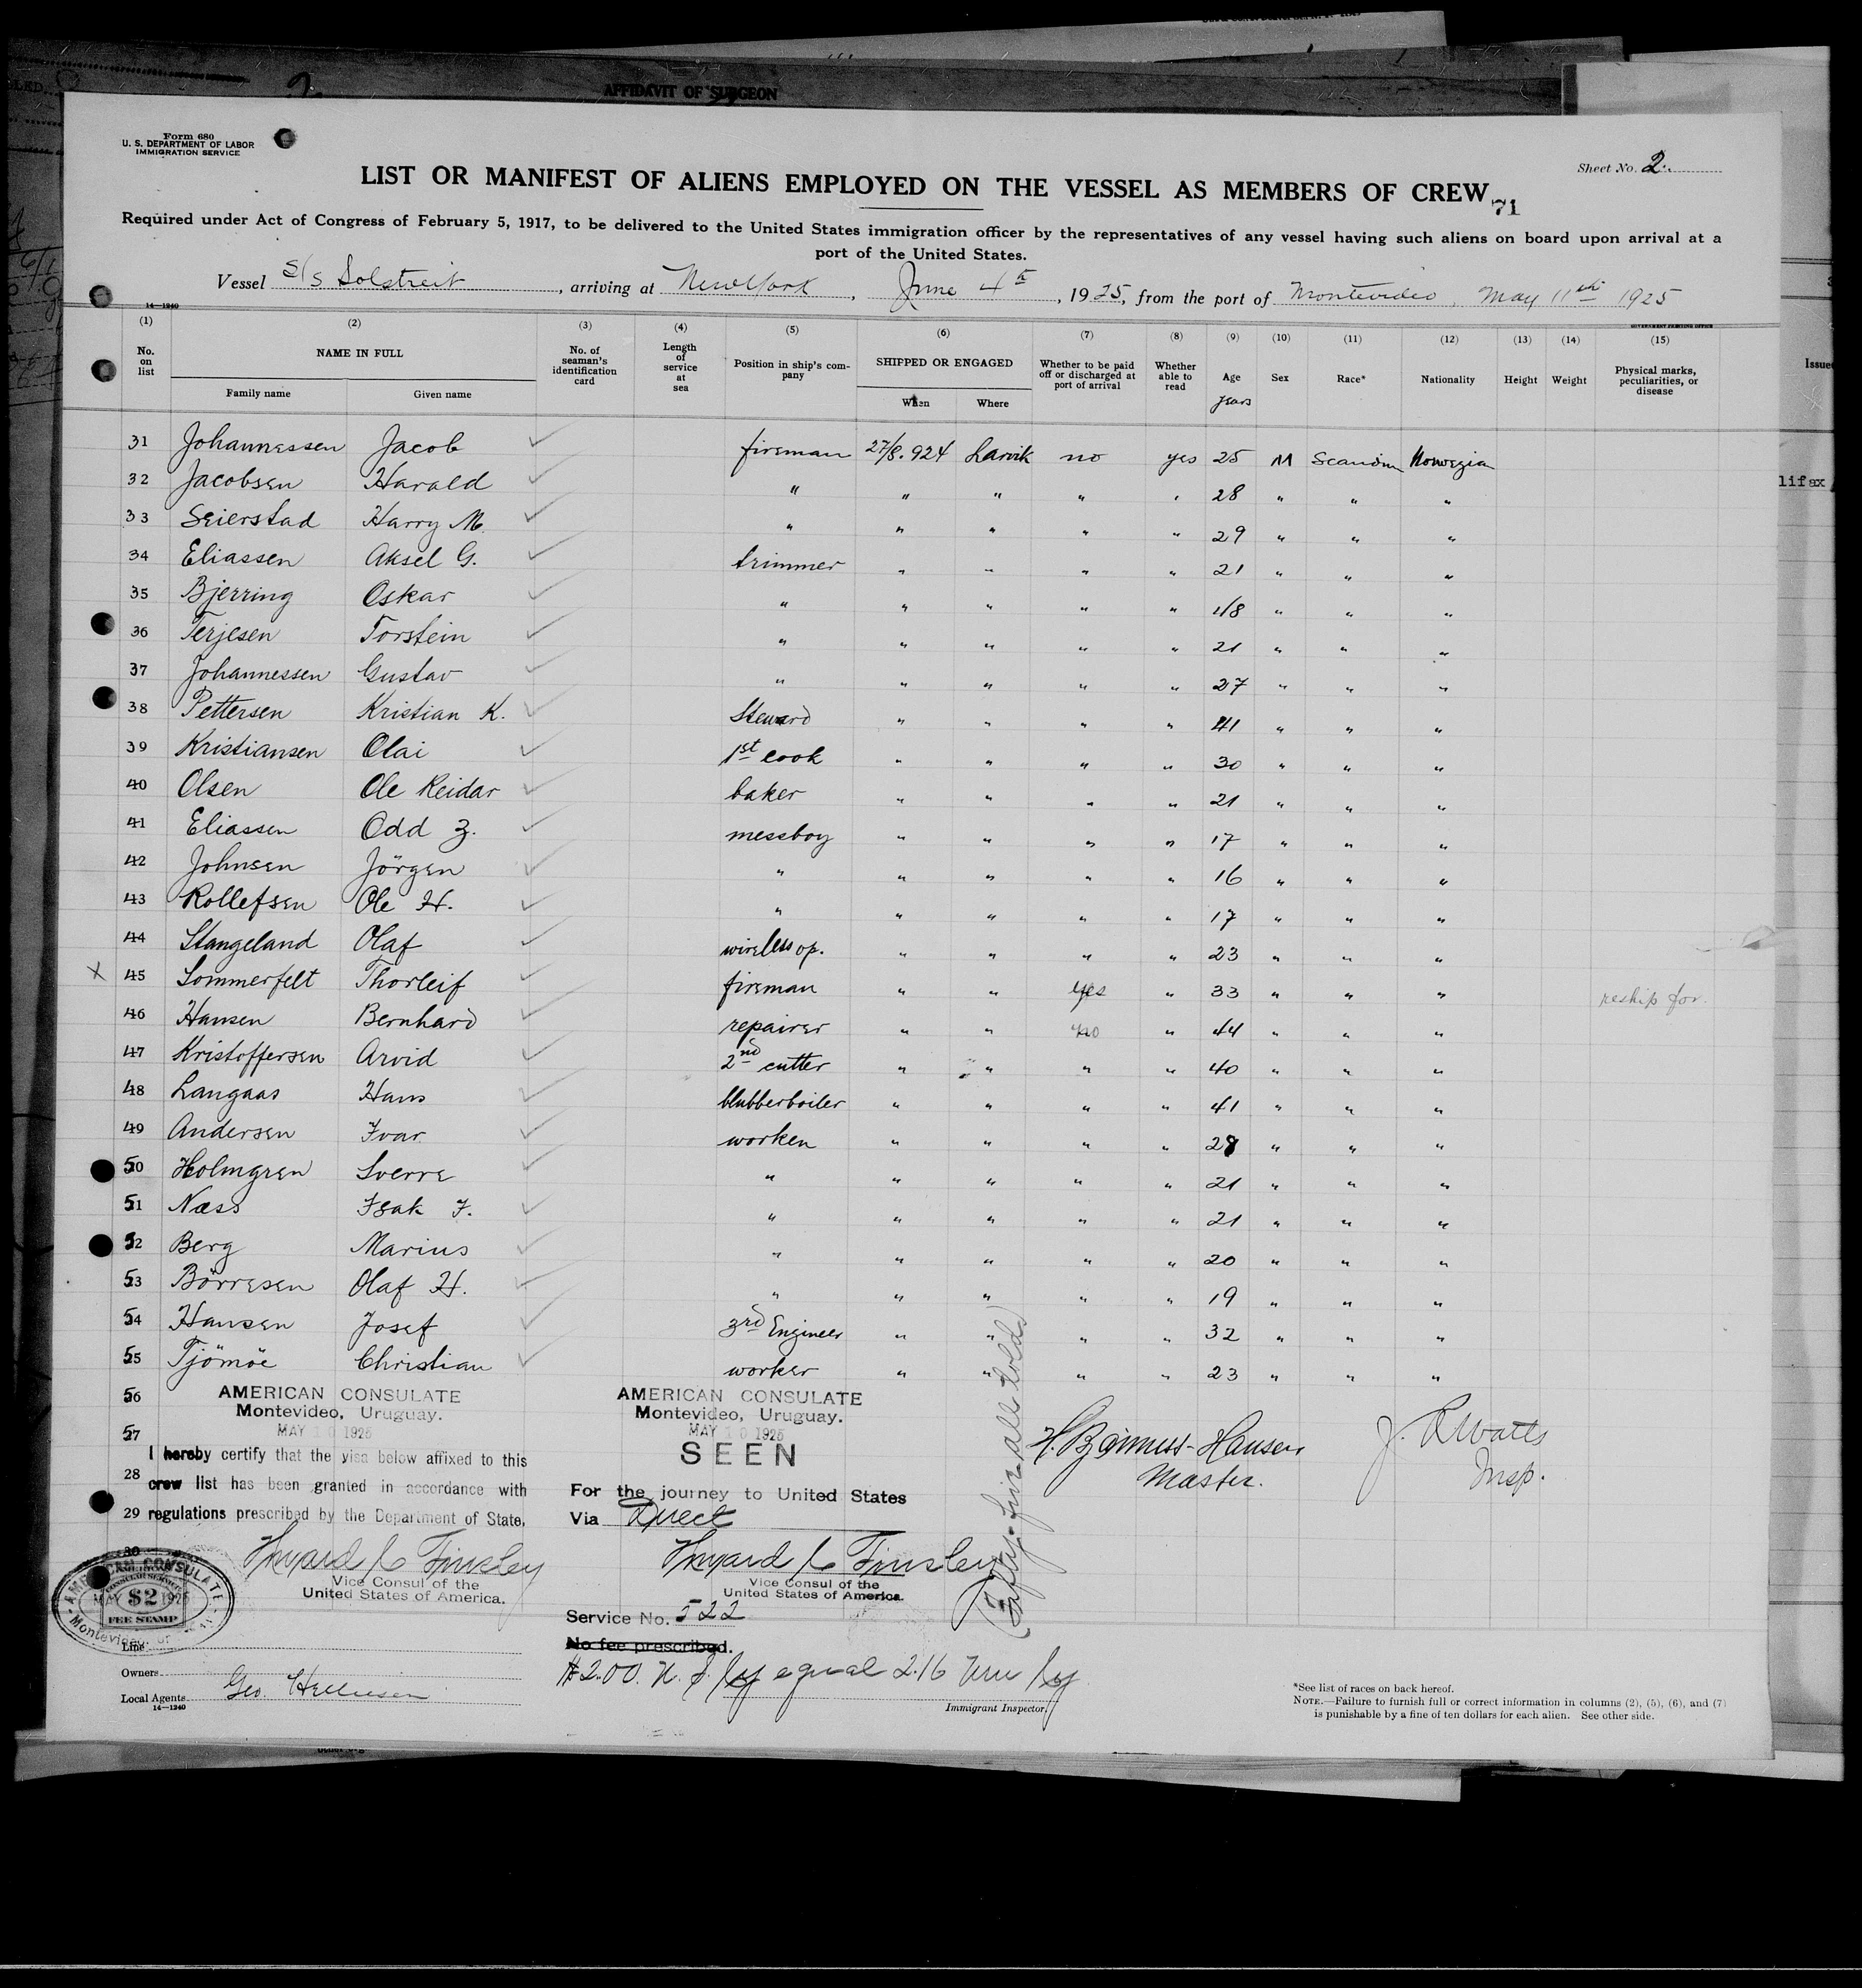 AFFIDAVIT OF SURGEON
Form 680
U. S. DEPARTMENT OF LABOR
IMMIGRATION SERVICE
Sheet No. 2
LIST OR MANIFEST OF ALIENS EMPLOYED ON THE VESSEL AS MEMBERS OF CREW
71
Required under Act of Congress of February 5, 1917, to be delivered to the United States immigration officer by the representatives of any vessel having such aliens on board upon arrival at a
port of the United States.
Vessel S/S Solstreif, arriving at New York, June 4th, 1925, from the port of Montevideo, May 11th 1925
14—1240
(1) (2) (3) (4) (5) (6) (7) (8) (9) (10) (11) (12) (13) (14) (15)
No. on list NAME IN FULL Family name Given name No. of seaman's identification card Length of service at sea Position in ship's company SHIPPED OR ENGAGED When Where Whether to be paid off or discharged at port of arrival Whether able to read Age years Sex Race* Nationality Height Weight Physical marks, peculiarities, or disease
31 Johannessen Jacob fireman 27/8.924 Larvik no yes 25 M Scandin Norwegian
32 Jacobsen Harald " " " " " 28 " " "
33 Seierstad Harry M. " " " " " 29 " " "
34 Eliassen Aksel G. trimmer " " " " 21 " " "
35 Bjerring Oskar " " " " " 18 " " "
36 Terjesen Torstein " " " " " 21 " " "
37 Johannessen Gustav " " " " " 27 " " "
38 Pettersen Kristian K. Steward " " " " 41 " " "
39 Kristiansen Olai 1st cook " " " " 30 " " "
40 Olsen Ole Reidar baker " " " " 21 " " "
41 Eliassen Odd Z. messboy " " " " 17 " " "
42 Johnsen Jörgen " " " " " 16 " " "
43 Rollefsen Ole H. " " " " " 17 " " "
44 Stangeland Olaf wireless op. " " " " 23 " " "
x 45 Sommerfelt Thorleif fireman " " yes " 33 " " " reship for.
46 Hansen Bernhard repairer " " no " 44 " " "
47 Kristoffersen Arvid 2nd cutter " " " " 40 " " "
48 Langaas Hans blubberboiler " " " " 41 " " "
49 Andersen Ivar worken " " " " 28 " " "
50 Holmgren Sverre " " " " " 21 " " "
51 Næss Isak F. " " " " " 21 " " "
52 Berg Marius " " " " " 20 " " "
53 Börresen Olaf H. " " " " " 19 " " "
54 Hansen Josef 3rd Engineer " " " " 32 " " "
55 Tjömöe Christian worker " " " " 23 " " "
56
57
28
29
30
AMERICAN CONSULATE
Montevideo, Uruguay.
MAY 10 1925
I hereby certify that the visa below affixed to this
crew list has been granted in accordance with
regulations prescribed by the Department of State.
Vice Consul of the
United States of America.
AMERICAN CONSULATE
Montevideo, Uruguay.
MAY 10 1925
SEEN
For the journey to United States
Via Direct
Vice Consul of the
United States of America.
Service No. 522
No fee prescribed.
$2.00 U. S.
equal 2.16
(Fifty-five all told)
Hansen
Master.
J. Watts
Insp.
AMERICAN CONSULATE
CONSULAR SERVICE
MAY $2 1925
FEE STAMP
Montevideo
Line
Owners
Local Agents Geo.
14—1240
Immigrant Inspector.
*See list of races on back hereof.
NOTE.—Failure to furnish full or correct information in columns (2), (5), (6), and (7)
is punishable by a fine of ten dollars for each alien. See other side.
lifax